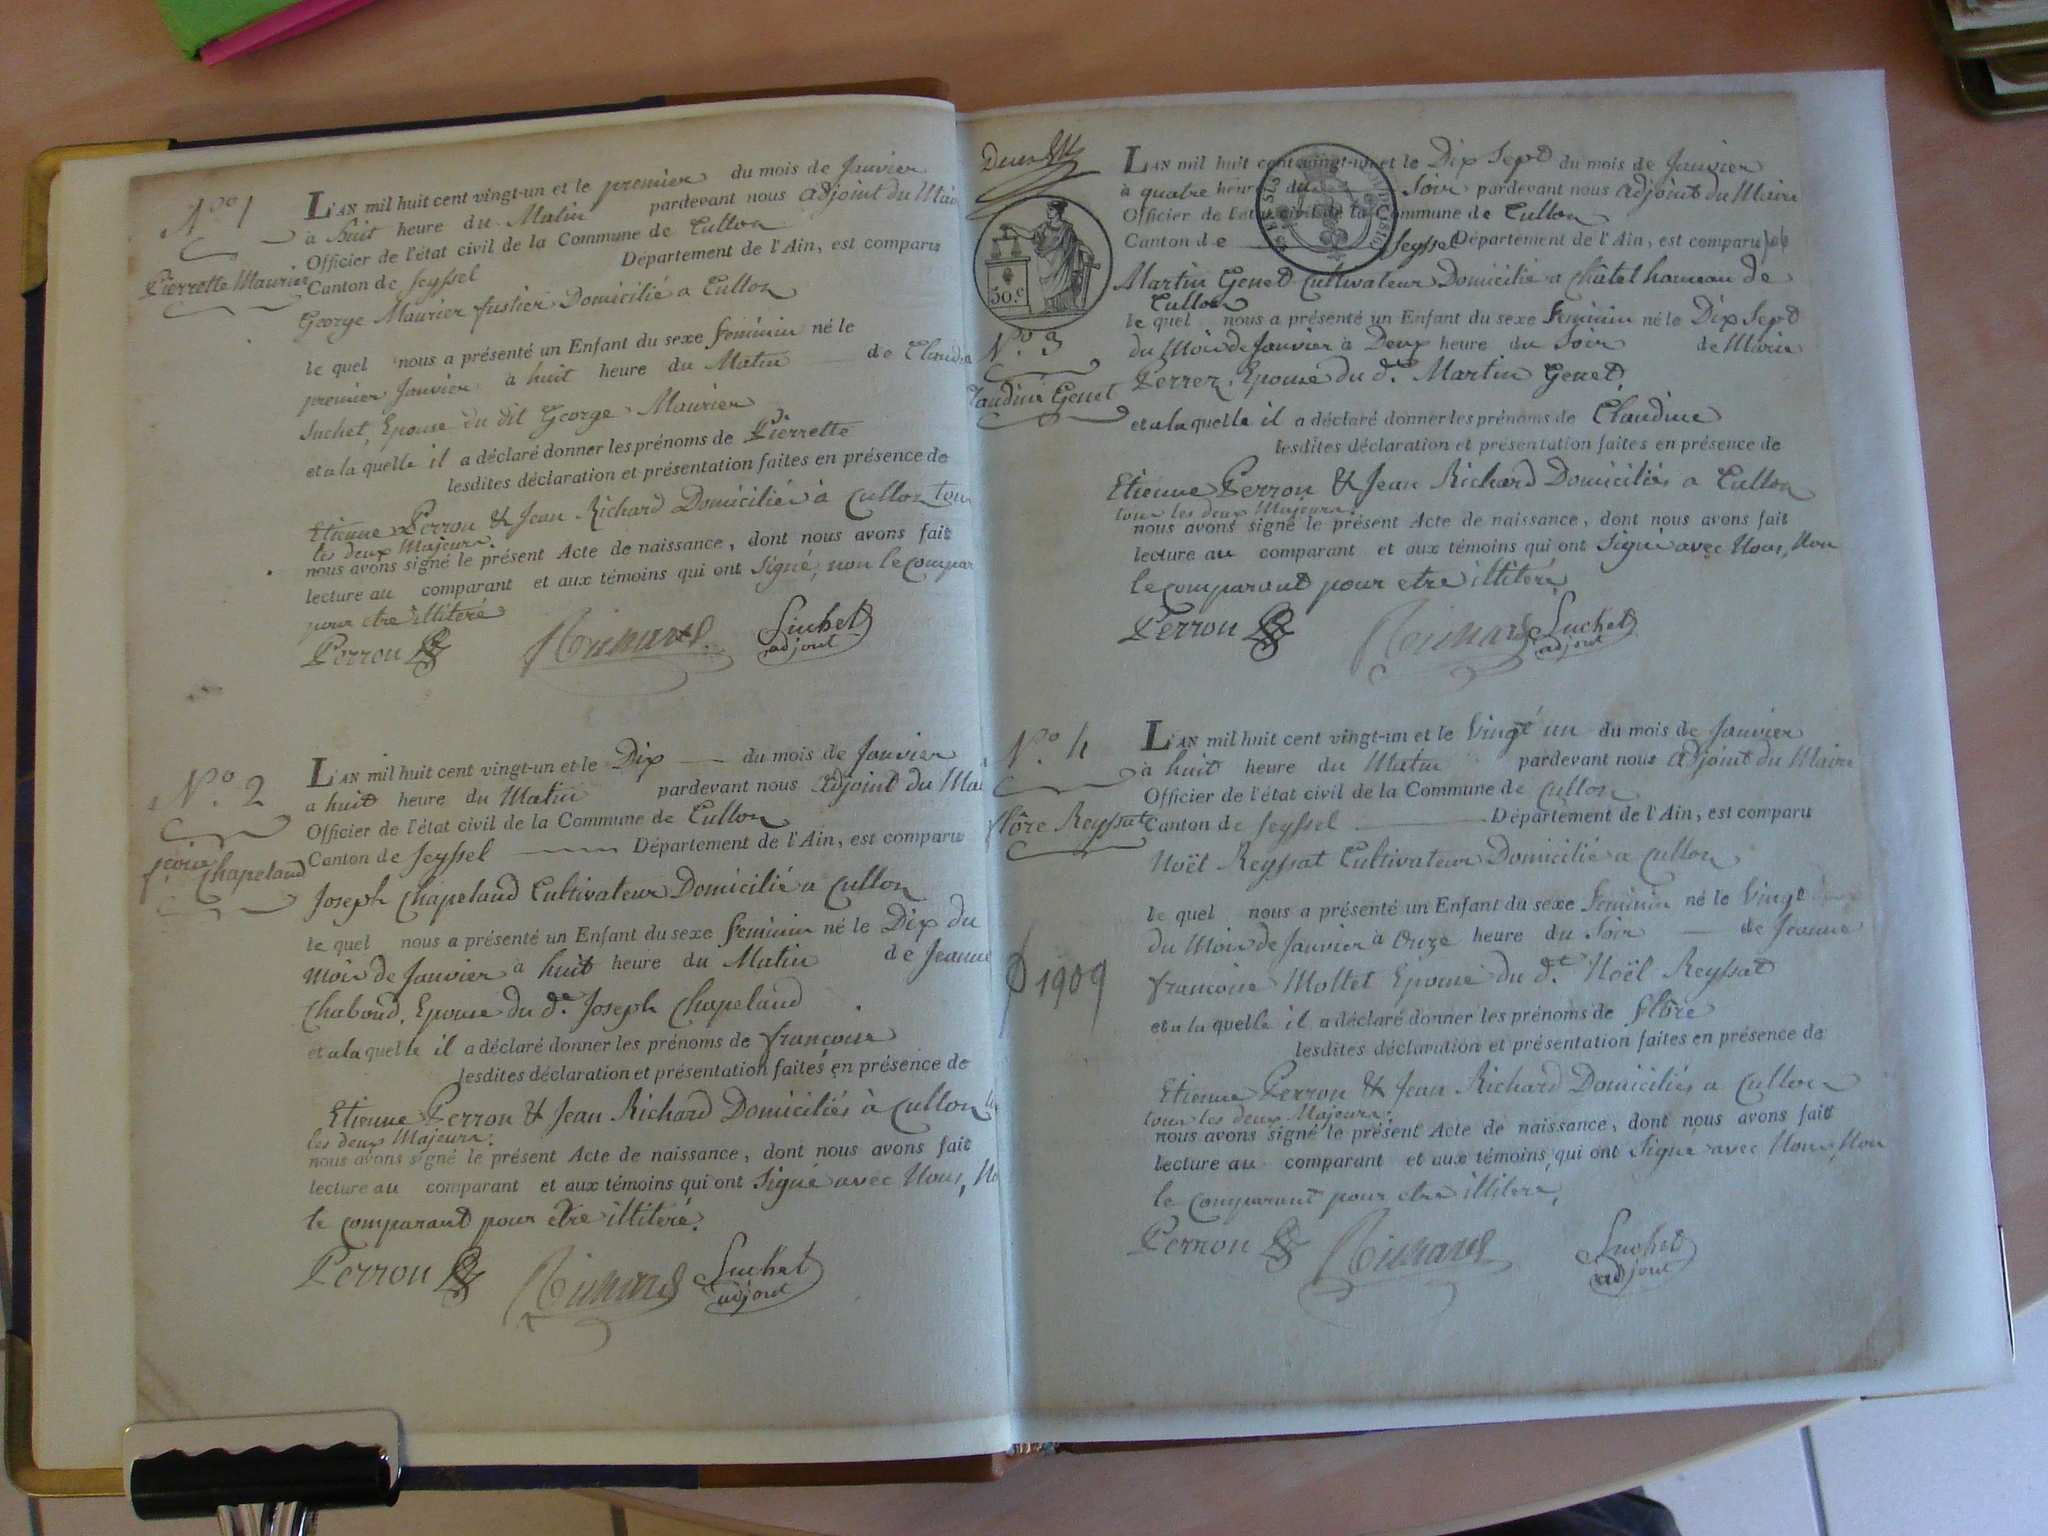 N.o 1
Pierrette Maurier
L'AN mil huit cent vingt-un et le premier du mois de Janvier
à huit heure du Matin pardevant nous adjoint du Mair
Officier de l'état civil de la Commune de Cullon
Canton de Seyssel Département de l'Ain, est comparu
George Maurier fustier Domicilié a Cullon
le quel nous a présenté un Enfant du sexe feminin né le
premier Janvier à huit heure du Matin de Claudi
Suchet, Epouse du dit George Maurier
et a la quelle il a déclaré donner les prénoms de Pierrette
lesdites déclaration et présentation faites en présence de
Etienne Perron & Jean Richard Domiciliés à Cullon tou
les deux Majeurs.
nous avons signé le présent Acte de naissance, dont nous avons fait
lecture au comparant et aux témoins qui ont Signé, non le compar
pour etre illiteré
Perron Richard Suchet
adjoint
N.o 2
Chapeland
L'AN mil huit cent vingt-un et le Dix du mois de Janvier
a huit heure du Matin pardevant nous adjoint du Mai
Officier de l'état civil de la Commune de Cullon
Canton de Seyssel Département de l'Ain, est comparu
Joseph Chapeland Cultivateur Domicilié a Cullon
le quel nous a présenté un Enfant du sexe feminin né le Dix du
mois de Janvier à huit heure du Matin de Jeanne
Chaboud, Epouse du d.t Joseph Chapeland
et a la quelle il a déclaré donner les prénoms de francoise
lesdites déclaration et présentation faites en présence de
Etienne Perron & Jean Richard Domiciliés à Cullon
les deux Majeurs.
nous avons signé le présent Acte de naissance, dont nous avons fait
lecture au comparant et aux témoins qui ont Signé avec Nous, No
le comparant pour être illiteré.
Perron Richard Suchet
adjoint
50.c
N.o 3
laudine Genet
L'AN mil huit cent vingt-un et le Dix Sept du mois de Janvier
à quatre heure du Soir pardevant nous adjoint du Maire
Officier de l'état civil de la Commune de Cullon
Canton de Seyssel Département de l'Ain, est comparu
Martin Genet Cultivateur Domicilié a Châtel hameau de
Cullon
le quel nous a présenté un Enfant du sexe feminin né le Dix Sept
du Mois de Janvier à Deux heure du Soir de Marie
Perrer, Epouse du d.t Martin Genet
et a la quelle il a déclaré donner les prénoms de Claudine
lesdites déclaration et présentation faites en présence de
Etienne Perron & Jean Richard Domiciliés a Cullon
tous les deux Majeurs.
nous avons signé le présent Acte de naissance, dont nous avons fait
lecture au comparant et aux témoins qui ont Signé avec Nous, Non
le comparant pour etre illiteré
Perron Richard Suchet
adjoint
N.o 4
flôre Reyssat
1909
L'AN mil huit cent vingt-un et le Vingt un du mois de Janvier
à huit heure du Matin pardevant nous adjoint du Maire
Officier de l'état civil de la Commune de Cullon
Canton de Seyssel Département de l'Ain, est comparu
Noël Reyssat Cultivateur Domicilié a Cullon
le quel nous a présenté un Enfant du sexe feminin né le Vingt
du Mois de Janvier à Onze heure du Soir de Jeanne
francoise Mottet Epouse du d.t Noël Reyssat
et a la quelle il a déclaré donner les prénoms de flôre
lesdites déclaration et présentation faites en présence de
Etienne Perron & Jean Richard Domiciliés a Cullon
tous les deux Majeurs.
nous avons signé le présent Acte de naissance, dont nous avons fait
lecture au comparant et aux témoins qui ont Signé avec Nous, Non
le comparant pour etre illiteré,
Perron Richard Suchet
adjoint